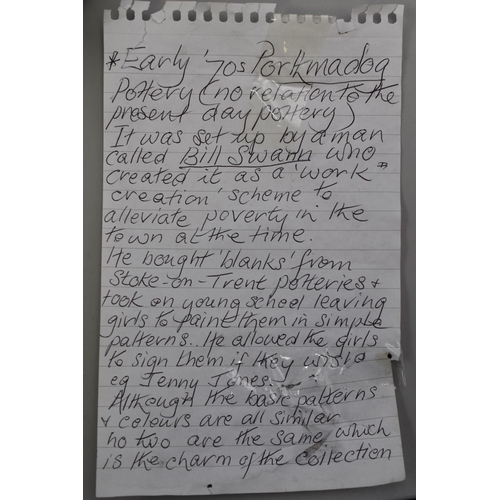 *Early '70s Porkmadog
Pottery (no relation to the
present day pottery)
It was set up by a man
called Bill Swann who
created it as a 'work
creation' scheme to
alleviate poverty in the
town at the time.
He bought 'blanks' from
Stoke-on-Trent potteries &
took on young school leaving
girls to paint them in simple
patterns.. He allowed the girls
to sign them if they wished
eg Jenny Jones.
Although the basic patterns
& colours are all similar
no two are the same which
is the charm of the collection